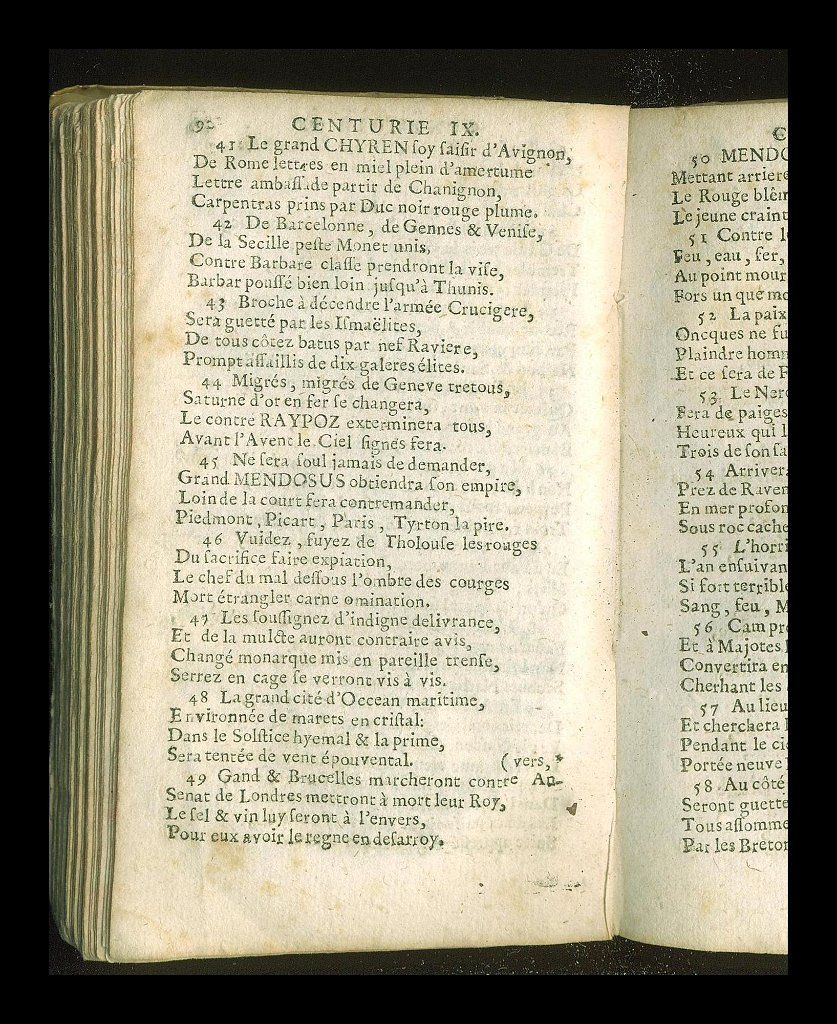 92 CENTURIE IX.
41 Le grand CHYREN ſoy ſaiſir d'Avignon,
De Rome lettres en miel plein d'amertume
Lettre ambaſſade partir de Chanignon,
Carpentras prins par Duc noir rouge plume.
42 De Barcelonne, de Gennes & Veniſe,
De la Secille peſte Monet unis,
Contre Barbare claſſe prendront la viſe,
Barbar pouſſé bien loin juſqu'à Thunis.
43 Broche à décendre l'armée Crucigere,
Sera guetté par les Iſmaëlites,
De tous côtez batus par nef Raviere,
Prompt aſſaillis de dix galeres élites.
44 Migrés, migrés de Geneve tretous,
Saturne d'or en fer ſe changera,
Le contre RAYPOZ exterminera tous,
Avant l'Avent le Ciel ſignes fera.
45 Ne ſera ſoul jamais de demander,
Grand MENDOSUS obtiendra ſon empire,
Loin de la court fera contremander,
Piedmont, Picart, Paris, Tyrton la pire.
46 Vuidez, fuyez de Tholouſe les rouges
Du ſacrifice faire expiation,
Le chef du mal deſſous l'ombre des courges
Mort étrangler carne omination.
47 Les ſouſſignez d'indigne delivrance,
Et de la mulcte auront contraire avis,
Changé monarque mis en pareille trenſe,
Serrez en cage ſe verront vis à vis.
48 La grand cité d'Occean maritime,
Environnée de marets en criſtal:
Dans le Solſtice hyemal & la prime,
Sera tentée de vent épouvental. (vers,
49 Gand & Brucelles marcheront contre An-
Senat de Londres mettront à mort leur Roy,
Le ſel & vin luy ſeront à l'envers,
Pour eux avoir le regne en deſarroy.
C
50 MENDO
Mettant arriere
Le Rouge blêm
Le jeune craint
51 Contre l
Feu, eau, fer,
Au point mour
Fors un que mo
52 La paix
Oncques ne fu
Plaindre homm
Et ce ſera de F
53 Le Nero
Fera de paiges
Heureux qui l
Trois de ſon ſa
54 Arrivera
Prez de Raven
En mer profon
Sous roc cache
55 L'horri
L'an enſuivan
Si fort terrible
Sang, feu, M
56 Camp pre
Et à Majotes
Convertira en
Cherhant les
57 Au lieu
Et cherchera
Pendant le cie
Portée neuve
58 Au côté
Seront guette
Tous aſſomme
Par les Breton